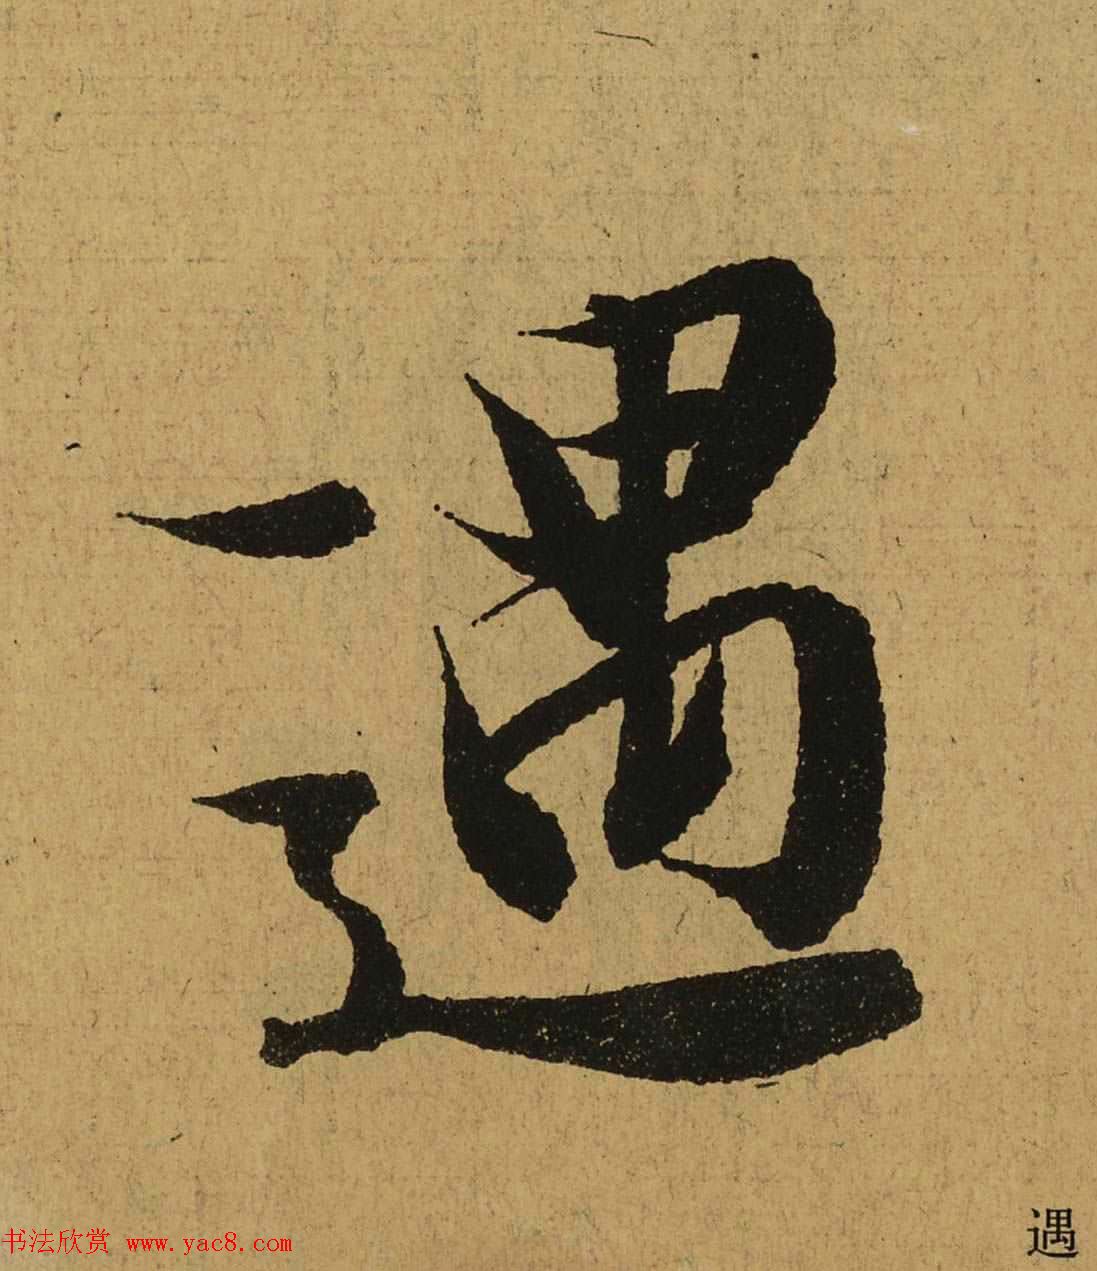 遇
书法欣赏 www.yac8.com
遇